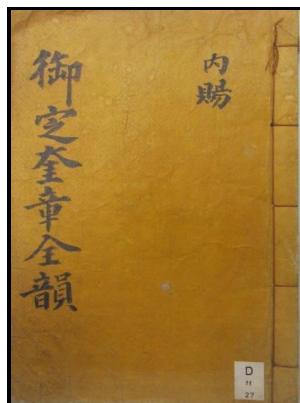 內賜
御定奎章全韻
D
11
27